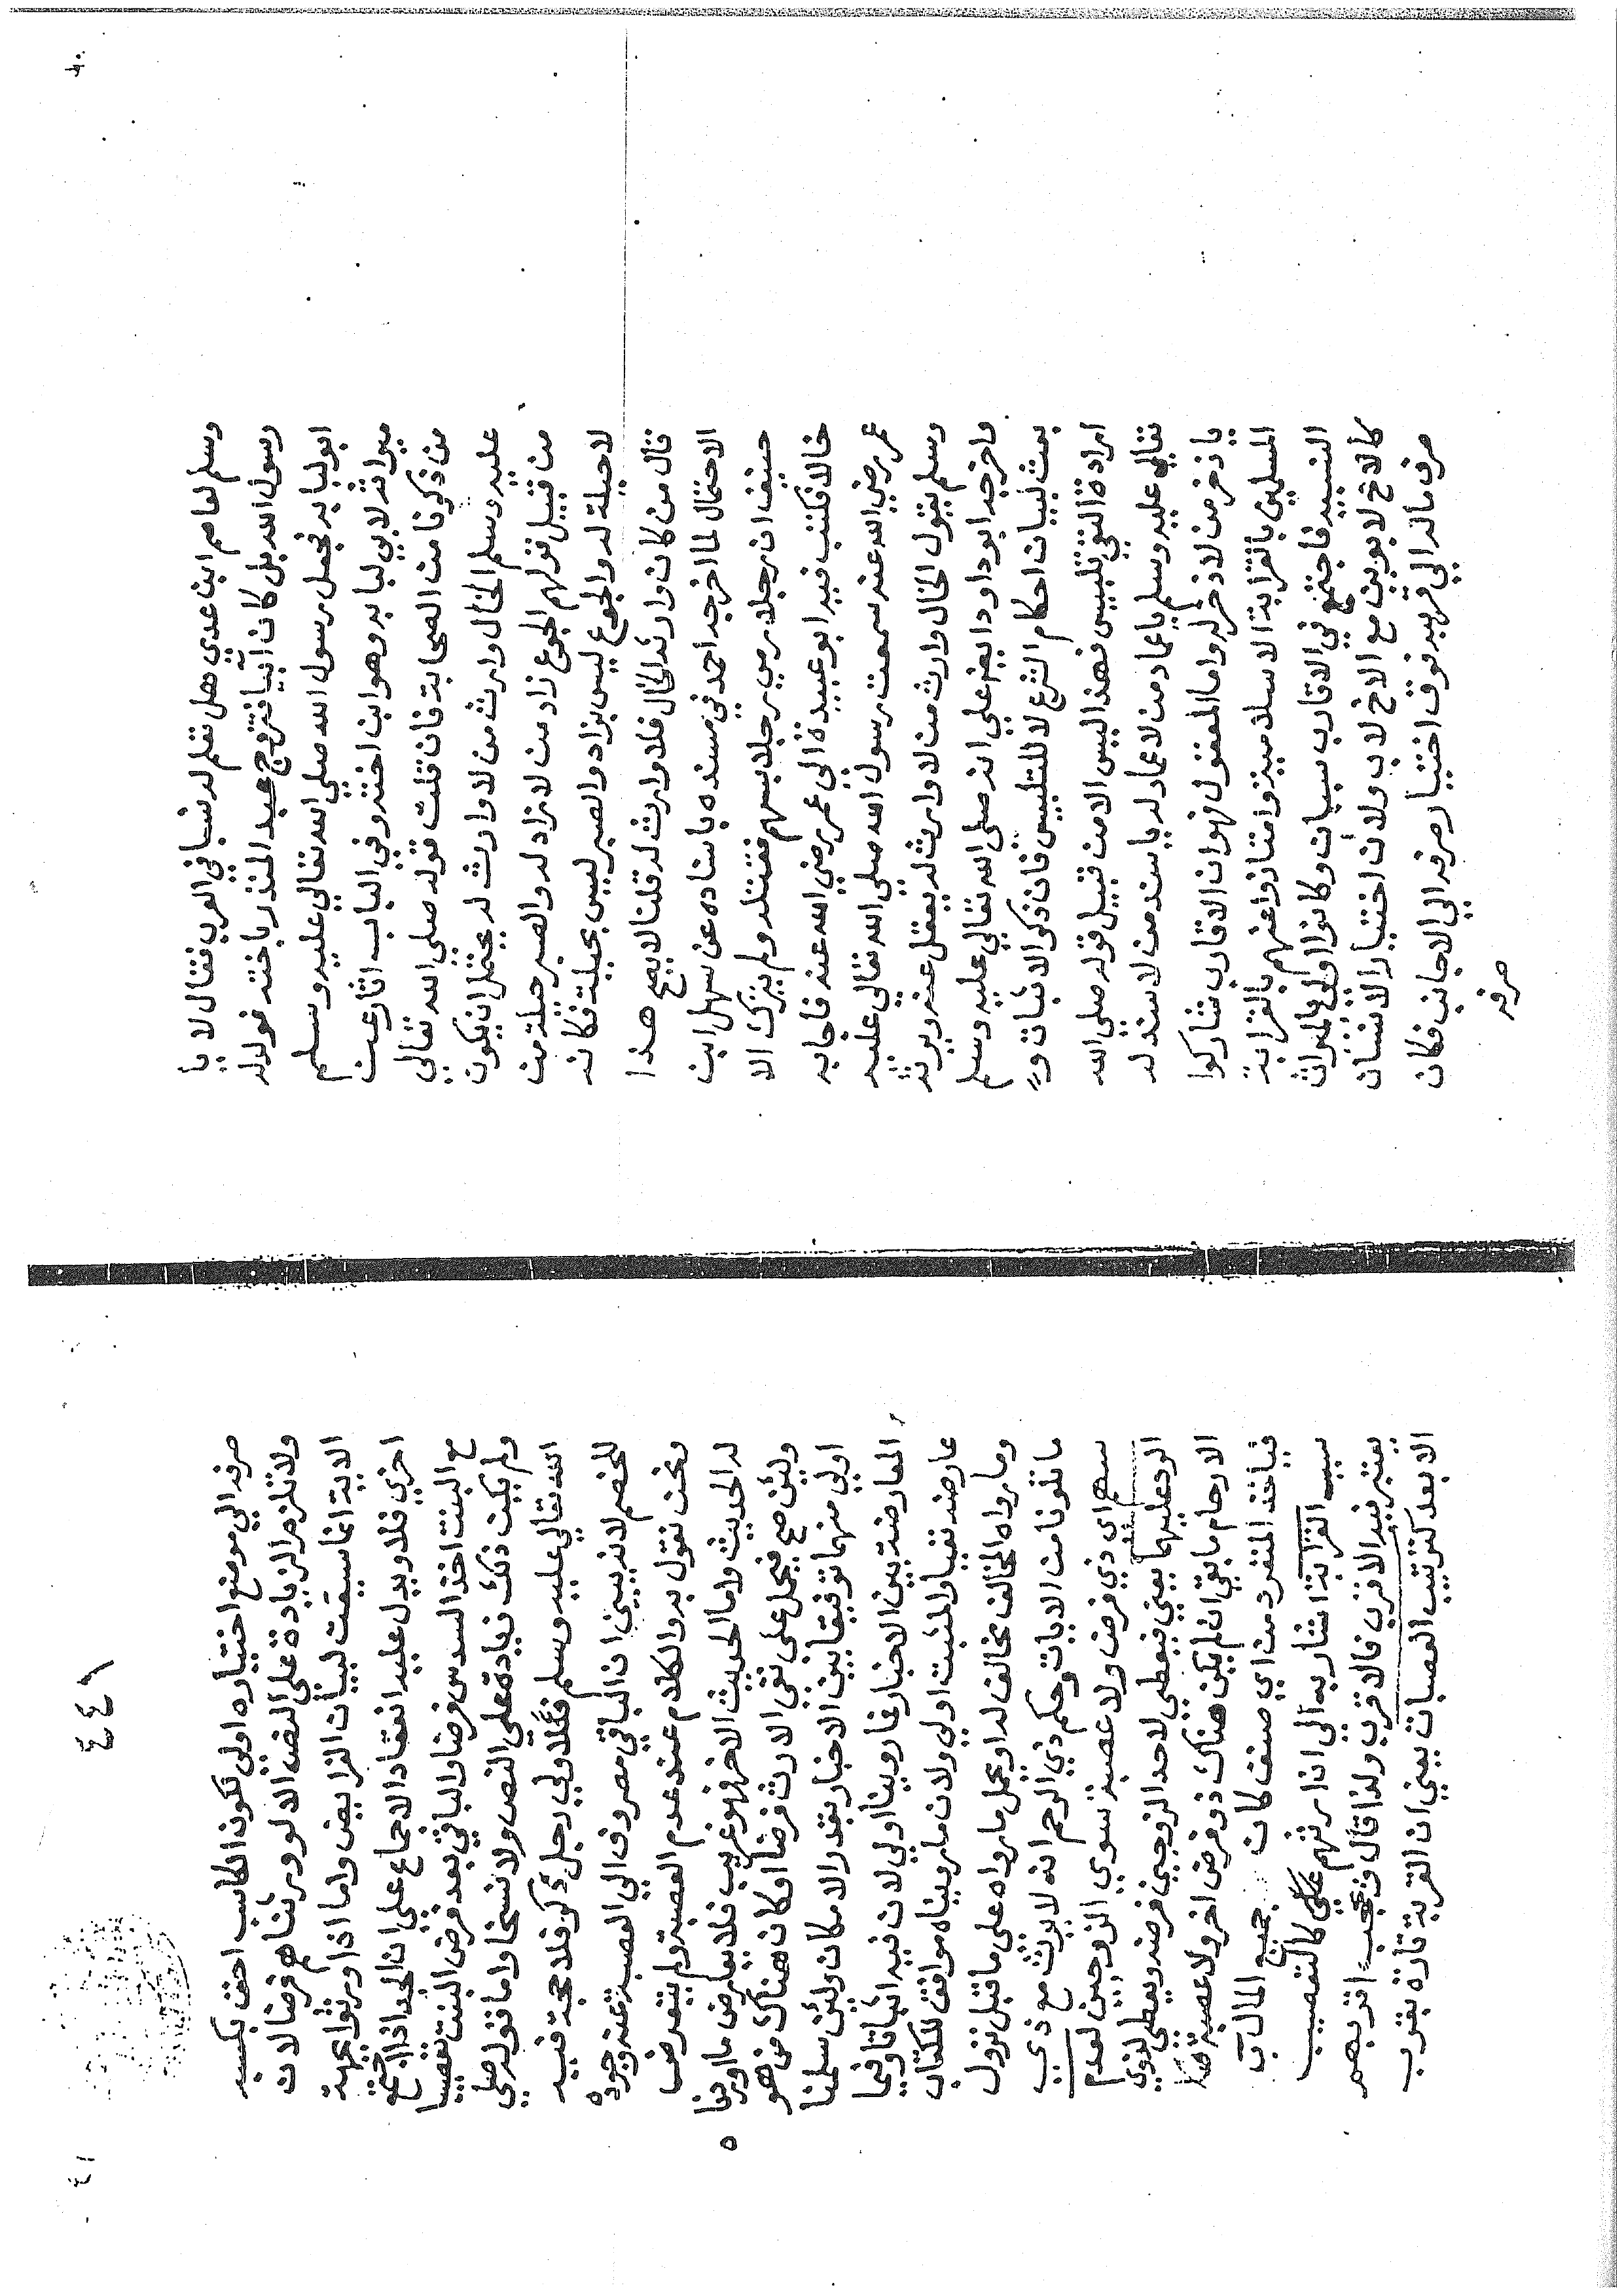 وسلم لعاصم ابن عدي هل تعلم له نسبا في العرب فقال لا يا
رسول الله بل كان آتيا فتزوج عبد المنذر باخته فولد له
ابو لبابه فجعل رسول الله صلى الله تعالى عليه وسلم
ميراثه لابي لبابه وهو ابن اخته وفي الباب اثار عن
من ذكرنا من الصحابة فان قلت قوله صلى الله تعالي
عليه وسلم الخال وارث من لا وارث له يحتمل ان يكون
من قبيل قولهم الجوع زاد من لا زاد له والصبر حيلة من
لا حيلة له والجوع ليس بزاد والصبر ليس بحيلة فكانه
قال من كان وارثه الخال فلا وارث له قلنا لا يصح هذا
الاحتمال لما اخرجه احمد في مسنده باسناده عن سهل ابن
حنيف ان رجلا رمي رجلا بسهم فقتله ولم يترك الا
خالا فكتب فيه ابو عبيدة الي عمر رضي الله عنه فاجابه
عمر رضي الله عنه سمعت رسول الله صلى الله تعالي عليه
وسلم يقول الخال وارث من لا وارث له يعقل عنه ويرثه
واخرجه ابو داود ايضا علي انه صلى الله تعالي عليه وسلم
بعث لبيان احكام الشرع لا للتلبيس فان ذكر الاثبات و
ارادة النفي تلبيس فهذا ليس الا من قبيل قوله صلي الله
تعالي عليه وسلم يا عماد من لا عماد له يا سند من لا سند له
يا ذخر من لا ذخر له واما المعقول فهو ان الاقارب شاركوا
المسلمين بالقرابة الاسلامية وامتازوا عنهم بالقرابة
النسبية فاجتمع في الاقارب سببان وكانوا اولي بالميراث
كالاخ لابوين مع الاخ لاب ولان اختيار الانسان
صرف ماله الي قريبه فوق اختيار صرفه الي الاجانب فكان
صرفه
٤٤١
صرفه الي موضع اختياره اولي لكونه الكاسب احق بكسبه
ولا تلزم الزيادة علي النص الا لو ورثناهم فرضا لان
الاية انما سيقت لبيان الفرايض واما اذا ورثوا بجهة
اخري فلا ويدل عليه انعقاد الاجماع علي ان الجد اذا اجتمع
مع البنت اخذ السدس فرضا والباقي بعد فرض البنت تعصيبا
ولم يكن ذلك زيادة علي النص ولا نسخا واما قوله صلي
الله تعالي عليه وسلم فلاولي رجل ذكر فلا حجة فيه
للخصم لانه يبين ان الباقي مصروف الي العصبة عند وجوده
ونحن نقول به والكلام عند عدم العصبة ولم يتعرض
له الحديث واما الحديث الاخر فهو غريب فلا يعارض ما اوردنا
ولئن صح فيحمل علي نفي الارث فرضا او كان هناك من هو
اولي منهما توفيقا بين الاخبار بقدر الامكان ولئن سلمنا
المعارضة بين الاخبار فما روينا اولي لان فيه اثباتا وفيما
عارضه نفيا والمثبت اولي ولان ما رويناه موافق للكتاب
وما رواه المخالف مخالف له او يحمل ما رواه علي ما قبل نزول
ما تلونا من الايات وحكم ذي الرحم انه لا يورث مع ذي
سهم اي ذي فرض ولا عصبة سوي الزوجين لعدم
الرد عليهما يعني فيعطي لاحد الزوجين فرضه ويعطي لذوي
الارحام ما بقي ان لم يكن هناك ذو فرض اخر ولا عصبة
فيأخذ المنفرد من اي صنف كان جميع المال
بسبب القرابة اشار به الي ان ارثهم كالتعصيب
يعتبر فيه الاقرب فالاقرب ولذا قال ويحجب اقربهم
الابعد كترتيب العصبات يعني ان القرب تارة بقرب